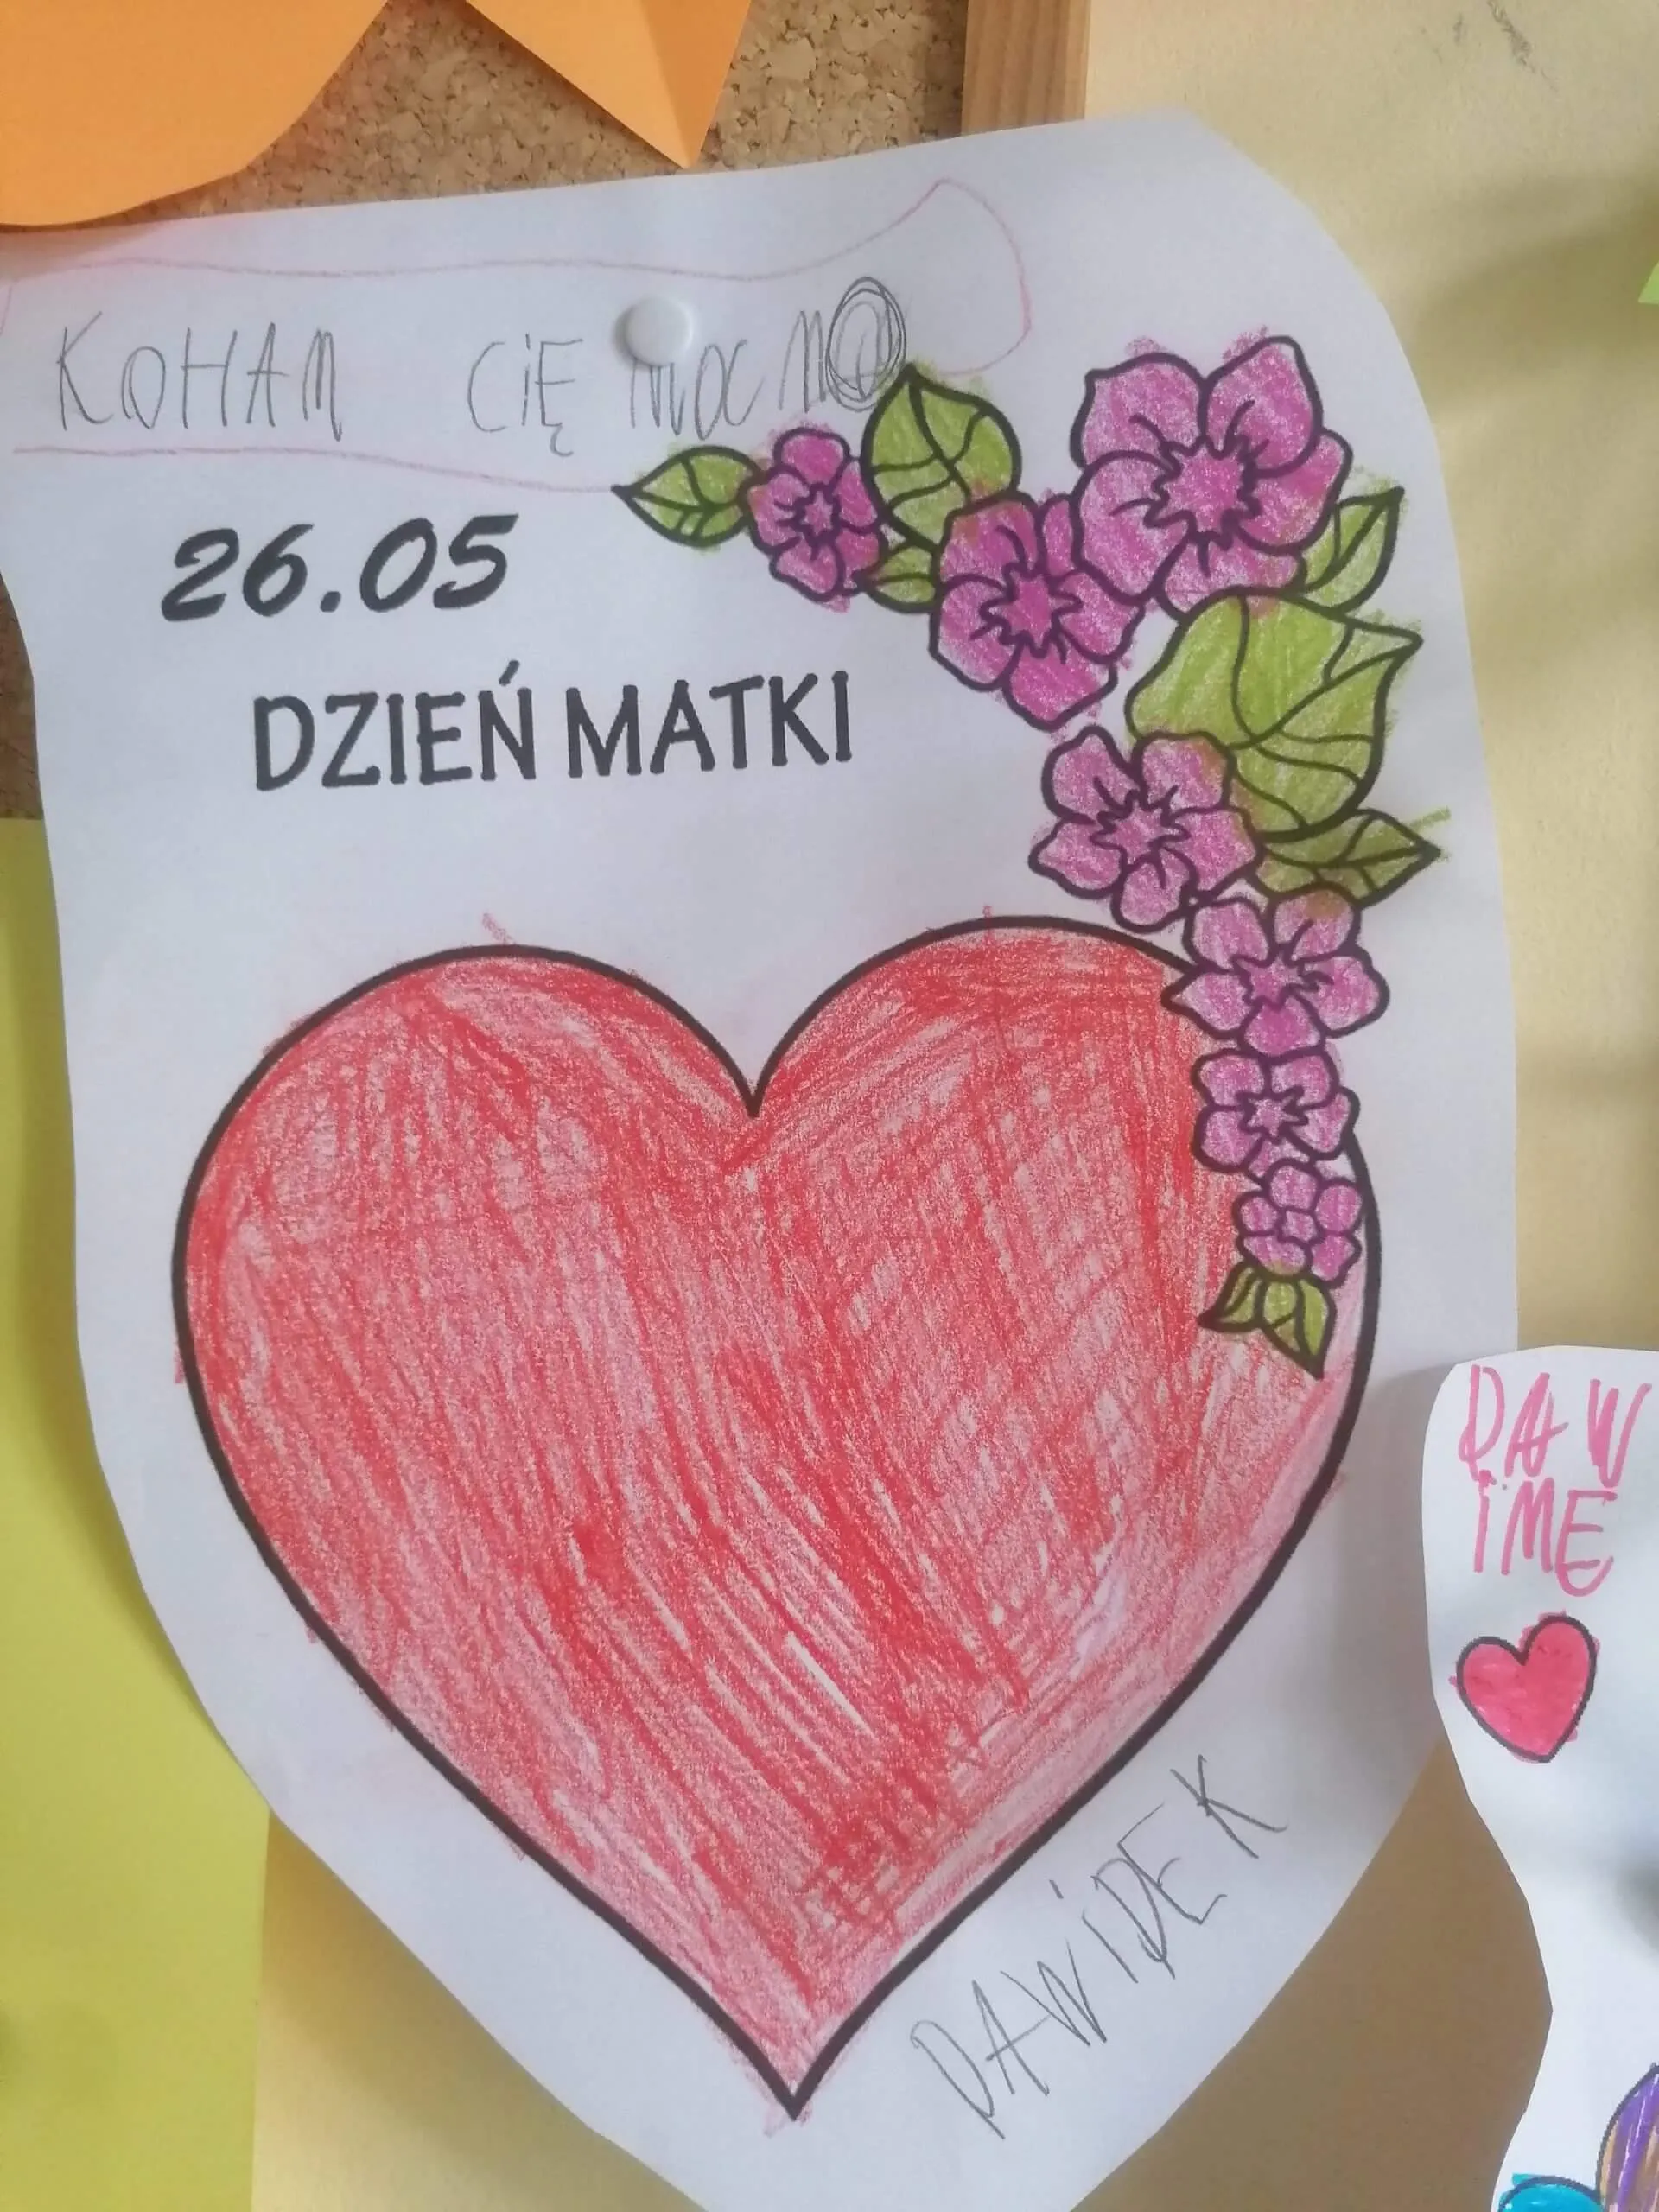 KOHAM CIĘ MOCNO
26.05
DZIEŃ MATKI
DAWIDEK
DAW
IME